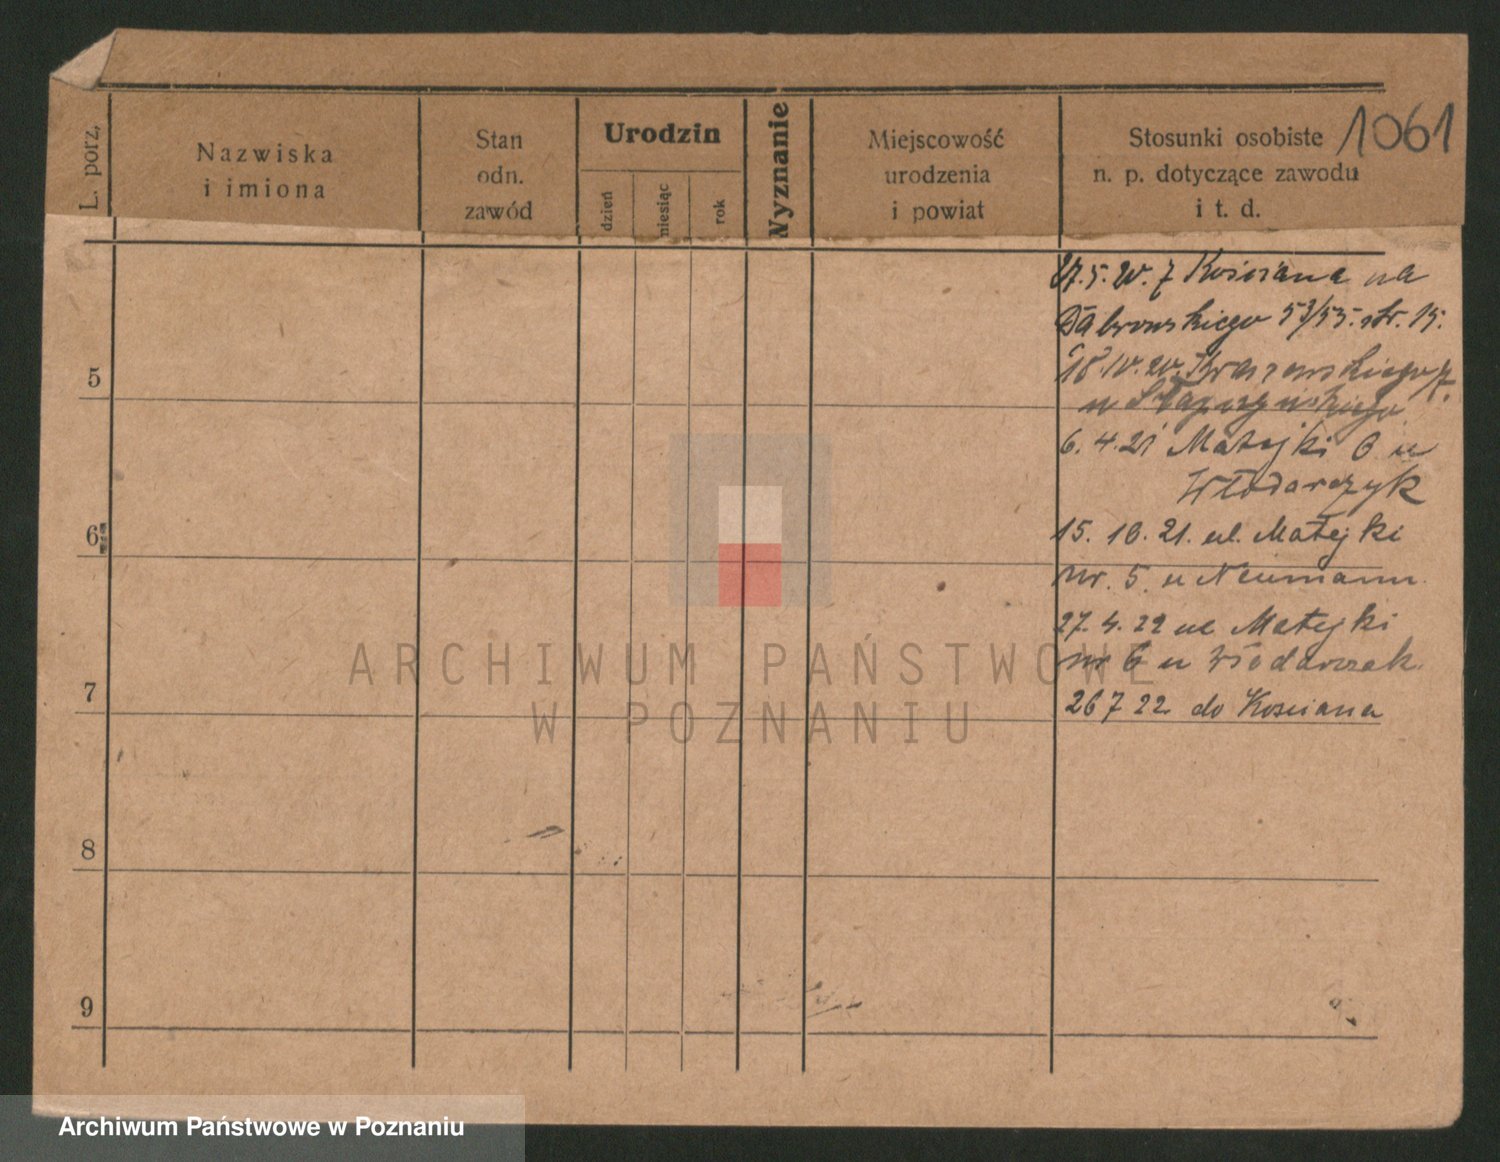 1061
L. porz.
Nazwiska
i imiona
Stan
odn.
zawód
Urodzin
dzień
miesiąc
rok
Wyznanie
Miejscowość
urodzenia
i powiat
Stosunki osobiste
n. p. dotyczące zawodu
i t. d.
27.5.20. z Kościana na
Dąbrowskiego 53/55. str. 15.
5
u
6. 4. 21 Matejki 6 u
Włodarczyk
6
15. 10. 21. ul. Matejki
nr. 5 u Neumann.
27. 4. 22 ul Matejki
nr 6 u Włodarczak.
7
26 7 22 do Kościana
8
9
ARCHIWUM PAŃSTWOWE
W POZNANIU
Archiwum Państwowe w Poznaniu